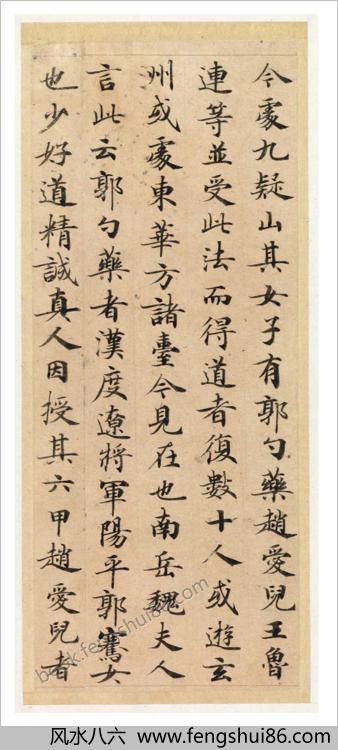 今䖏九疑山其女子有郭勺藥趙愛兒王魯
連等並受此法而得道者復數十人或遊玄
州或䖏東華方諸臺今見在也南岳魏夫人
言此云郭勺藥者漢度遼將軍陽平郭騫女
也少好道精誠真人因授其六甲趙愛兒者
book.fengshui86.com
风水八六 www.fengshui86.com